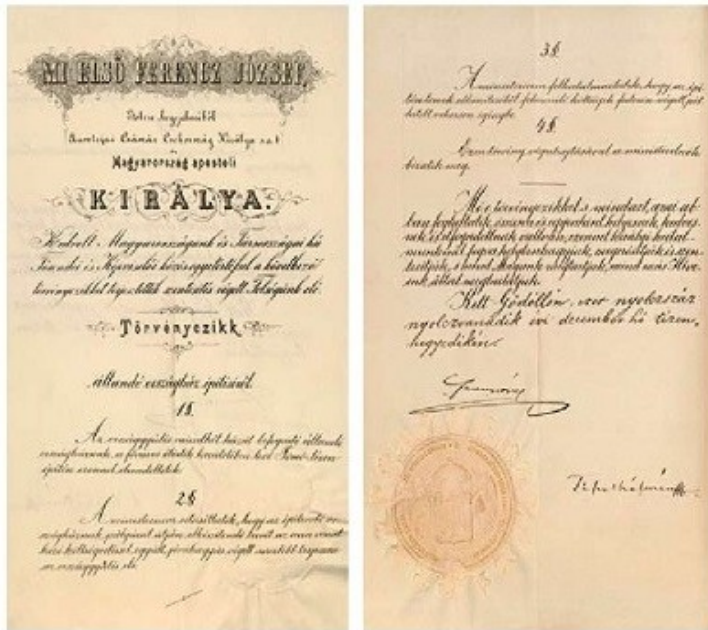 MI ELSŐ FERENCZ JÓZSEF,
Isten kegyelméből
Ausztriai Császár Csehország Királya s.a.t.
és
Magyarország apostoli
KIRÁLYA.
Kedvelt Magyarországunk és Társországai hű
Főrendei és Képviselői közös egyetértéssel a következő
törvényczikket terjesztették szentesítés végett Felségünk elé:
Törvényczikk
állandó országház építéséről.
1 §.
Az országgyűlés mindkét házát befogadó állandó
országháznak, a főváros területén levő Tömő-téren
építése ezennel elrendeltetik.
2 §
A ministerium utasíttatik, hogy az építendő or-
szágháznak, pályázat útján elkészítendő tervét az
költségvetéssel együtt, jóváhagyás végett
az országgyűlés elé.
3 §.
A ministerium felhatalmaztatik, hogy az épí-
költségek fedezése végett
4 §.
Ezen törvény végrehajtásával a ministerelnök
bizatik meg.
Mi e törvényczikket s mindazt, ami ab-
ban foglaltatik, összesen és egyenkint helyesnek, kedves-
nek és elfogadottnak vallván, ezennel királyi hatal-
munknál fogva helybenhagyjuk, megerősítjük és szen-
tesítjük, s mind Magunk megtartjuk, mind más Híve-
ink által megtartatjuk.
Kelt Gödöllőn, ezer nyolcszáz
nyolczvanadik évi deczember hó tizen-
negyedikén.